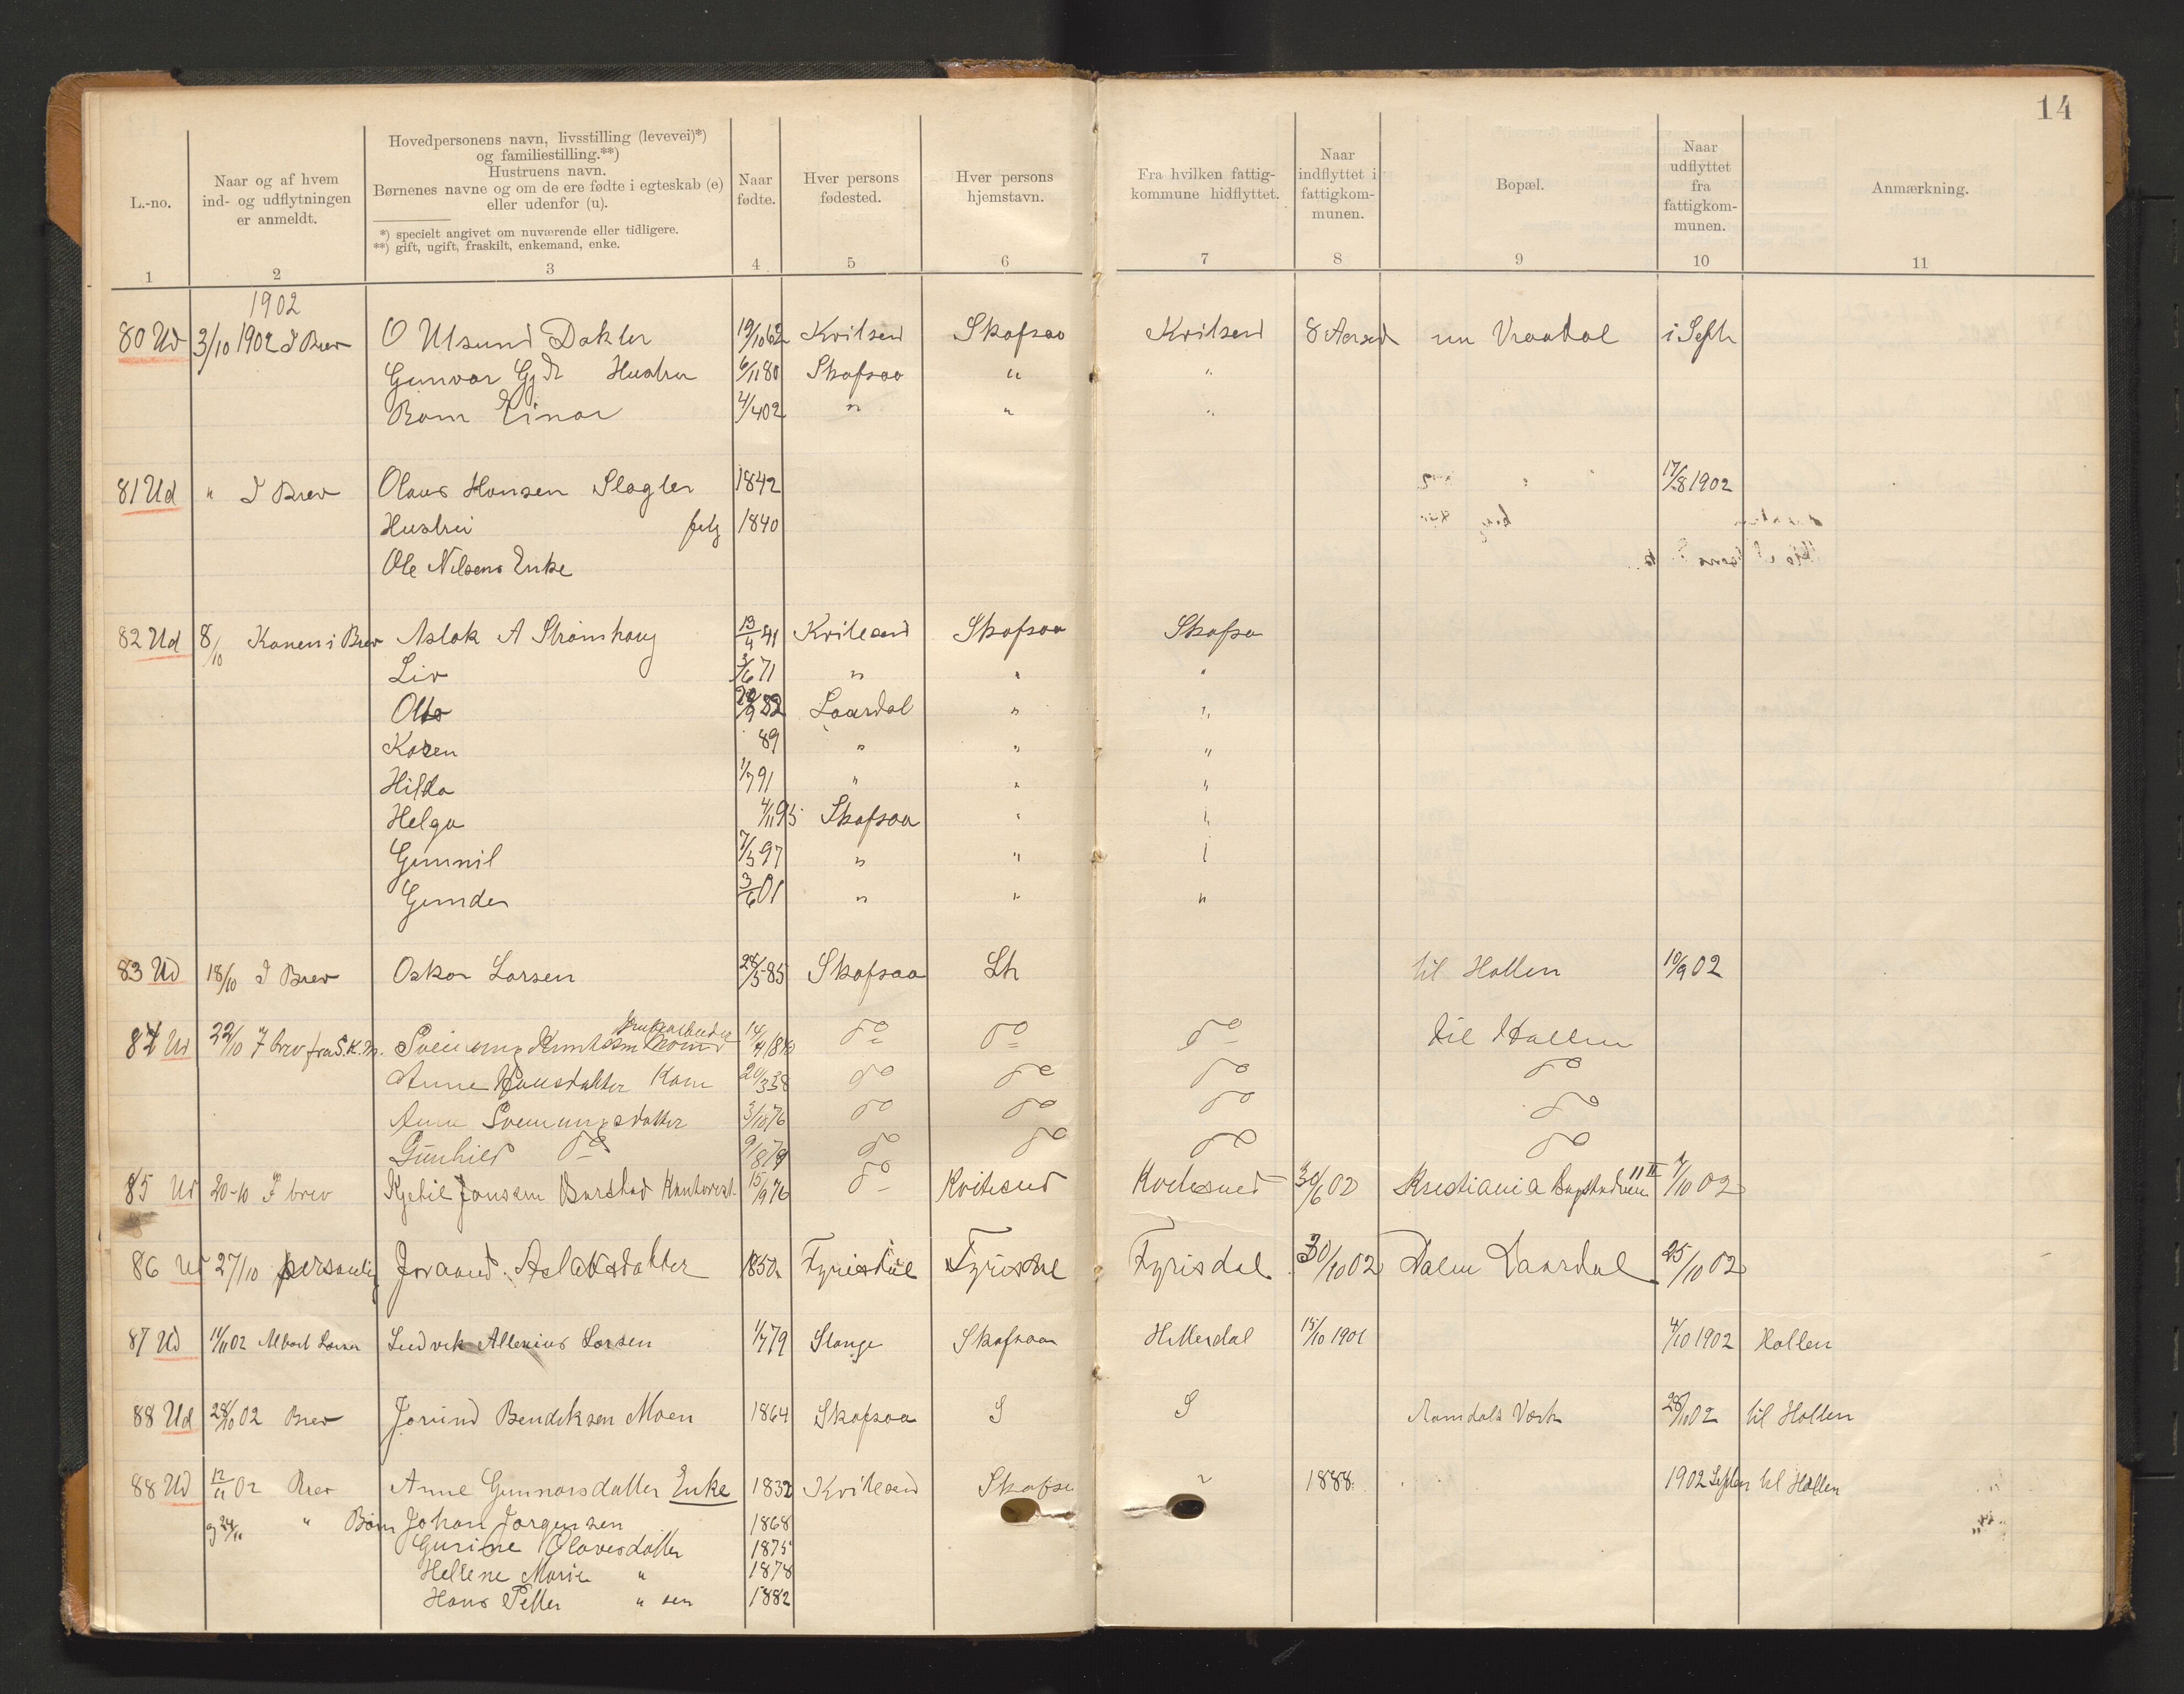 14
L.-no.
Naar og af hvem ind- og udflytningen er anmeldt.
Hovedpersonens navn, livsstilling (levevei)*) og familiestilling.**)
Hustruens navn.
Børnenes navne og om de ere fødte i egteskab (e) eller udenfor (u).
*) specielt angivet om nuværende eller tidligere.
**) gift, ugift, fraskilt, enkemand, enke.
Naar fødte.
Hver persons fødested.
Hver persons hjemstavn.
Fra hvilken fattigkommune hidflyttet.
Naar indflyttet i fattigkommunen.
Bopæl.
Naar udflyttet fra fattigkommunen.
Anmærkning.
1 2 3 4 5 6 7 8 9 10 11
1902
80 Ud 3/10 1902 I Brev O Ulsund Dokter 19/10 62 Kvitsed Skafsaa Kvitsed 8 nu Vraadal i Septr
Gunvor Hustru 6/11 80 Skafsaa " "
Barn Einar 4/4 02 " " "
81 Ud " I Brev Olaus Hansen Slagter 1842 17/8 1902
Hustru 1840
Ole Nilsens Enke
82 Ud 8/10 Konen i Brev Aslak A Strømhaug 13/4 41 Kvitesed Skafsaa Skafsa
Liv 3/6 71 " " "
Otto 82 Laardal " "
Karen 89 " " "
Hilda 1/7 91 " " "
Helga 4/11 95 Skafsaa " "
Gunnil 7/3 97 " "
Gunder 3/6 01 " " "
83 Ud 18/10 I Brev Oskar Larsen 28/5 85 Skafsaa til Hollen 10/9 02
84 Ud 22/10 I brev fra S. K. M. Sveinung do do do til Hollen
Anne Hansdatter Kone 20/3 38 do do do do
Anne Sveinungsdatter 3/10 76 do do do do
Gunhild do 9/8 79 do do do do
85 Ud 20-10 I brev Kjetil Jonsen 15/9 76 do Kvitesed Kvitesed 30/6 02 Kristiania 1/10 02
86 Ud 27/10 personlig Joraand Aslaksdatter 1850 Fyrisdal Fyrisdal Fyrisdal 30/10 02 Dalen Laardal 25/10 02
87 Ud 11/11 02 Albert Larsen Ludvik Larsen 1/7 79 Stange Skafsaa Hitterdal 15/10 1901 4/10 1902 Hollen
88 Ud 28/10 02 Brev Jorund Bendiksen Moen 1864 Skafsaa S S Aamdals Værk 28/10 02 til Hollen
88 Ud 12/11 02 Brev Anne Gunnarsdatter Enke 1832 Kvitesed Skafsa " 1888 1902 Septbr til Hollen
og 24/11 " Børn Johan Jørgensen 1868
Gurine Olavesdatter 1875
Hellene Marie " 1878
Hans Petter " sen 1882